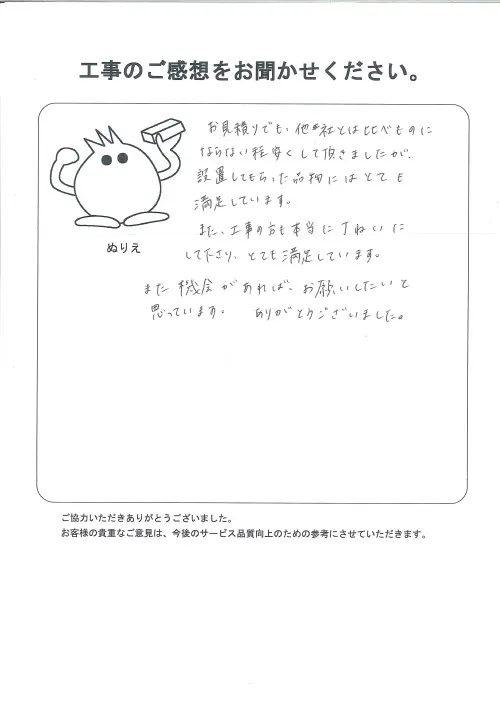 工事のご感想をお聞かせください。
お見積りでも、他社とは比べものに
ならない程安くして頂きましたが、
設置してもらった品物にはとても
満足しています。
また、工事の方も本当に丁ねいに
して下さり、とても満足しています。
また機会があれば、お願いしたいと
思っています。 ありがとうございました。
ぬりえ
ご協力いただきありがとうございました。
お客様の貴重なご意見は、今後のサービス品質向上のための参考にさせていただきます。